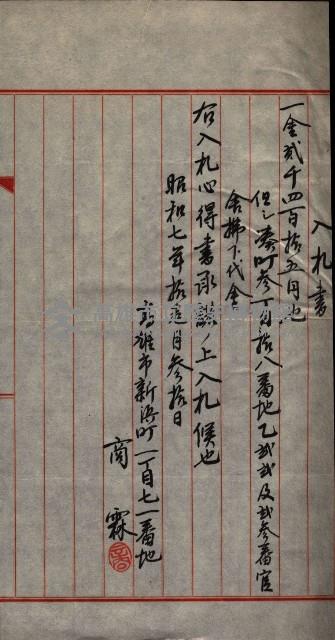 入札書
一金貳千四百拾五円也
但シ湊町參丁目拾八番地乙貳貳及貳參番官
舍拂下代金
右入札心得書承諾ノ上入札候也
昭和七年拾貳月參拾日
高雄市新濱町一丁目七一番地
商霖